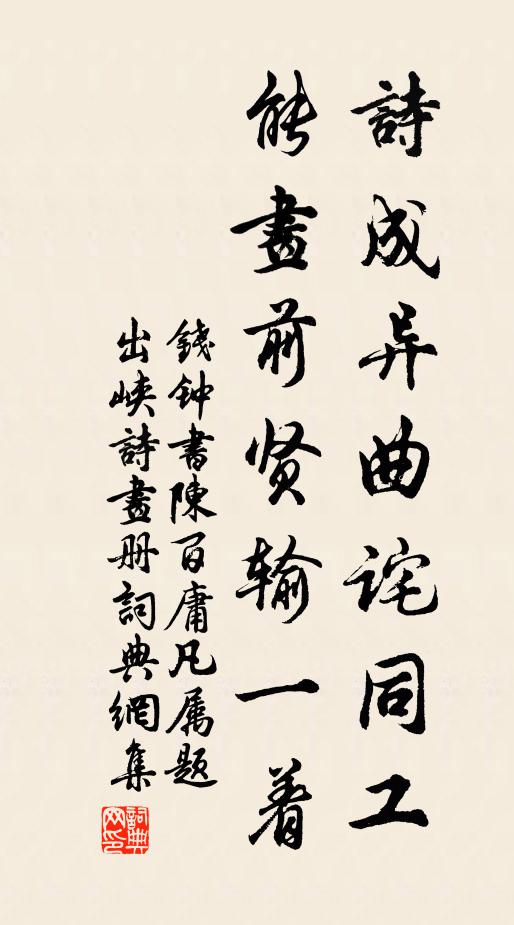 詩成异曲詫同工
能畫前贤输一着
錢钟書陳百庸凡属題
出峡詩畫册詞典網集
詞典